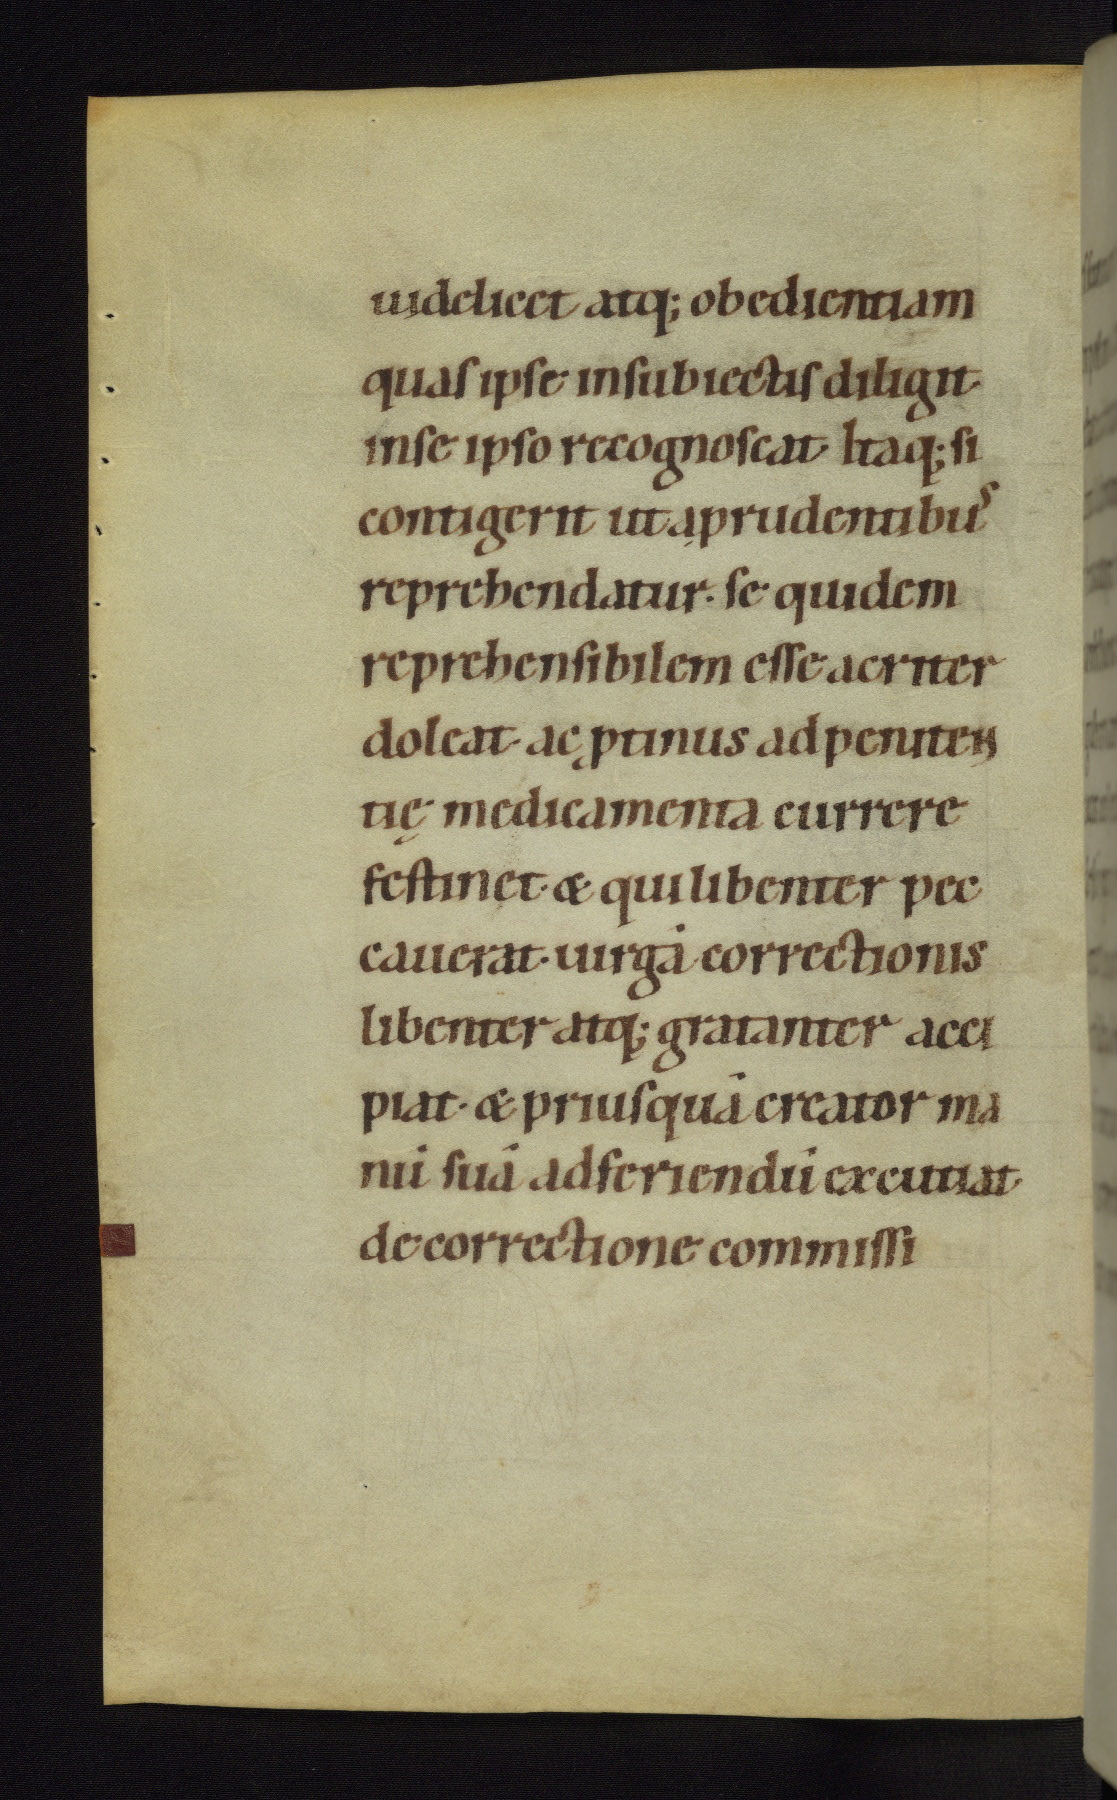 uidelicet atq; obedientiam
quas ipse in subiectis diligit
in se ipso recognoscat. Itaq; si
contigerit ut a prudentibus
reprehendatur. se quidem
reprehensibilem esse acriter
doleat. ac ꝓtinus ad peniten
tię medicamenta currere
festinet. & qui libenter pec
cauerat. uirgā correctionis
libenter atq; gratanter acci
piat. & priusquā creator ma
nū suā ad feriendū excutiat
de correctione commissi